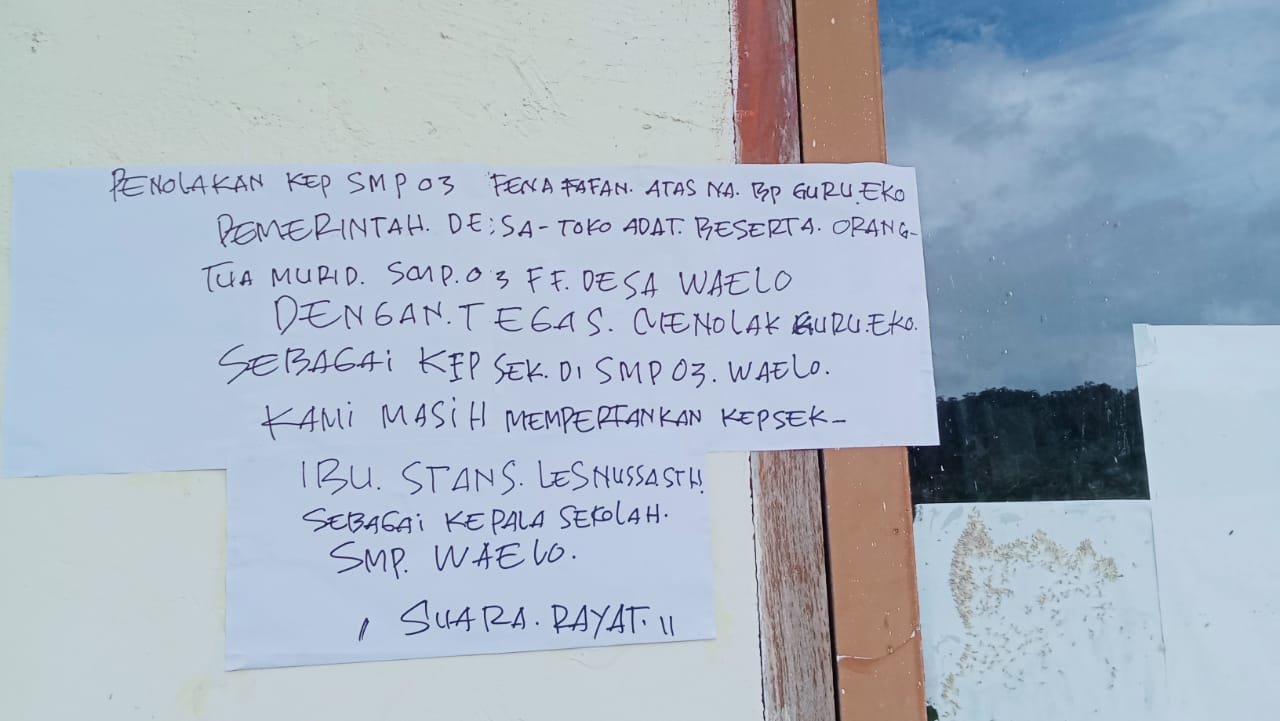 PENOLAKAN KEP SMP 03 FENA FAFAN. ATAS NA. BP GURU. EKO
PEMERINTAH. DE;SA-TOKO ADAT. BESERTA. ORANG-
TUA MURID. SMP. 03 FF. DESA WAELO
DENGAN. TEGAS. MENOLAK GURU. EKO.
SEBAGAI KEPSEK. DI SMP 03. WAELO.
KAMI MASIH MEMPERTANKAN KEPSEK-
IBU. STANS. LESNUSSASTH.
SEBAGAI KEPALA SEKOLAH.
SMP. WAELO.
" SUARA. RAYAT. "